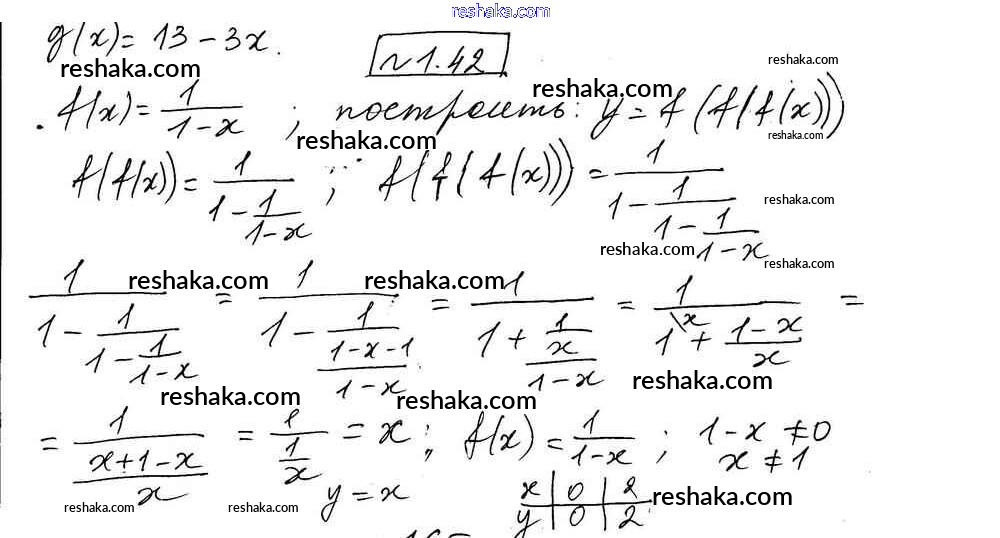 reshaka.com
g(x) = 13 - 3x.
reshaka.com
N1.42
reshaka.com
f(x) = 1/(1-x) ; построить: y = f(f(f(x)))
reshaka.com
reshaka.com
reshaka.com
f(f(x)) = 1/(1 - 1/(1-x)) ; f(f(f(x))) = 1/(1 - 1/(1 - 1/(1-x)))
reshaka.com
reshaka.com
reshaka.com
reshaka.com
reshaka.com
1/(1 - 1/(1 - 1/(1-x))) = 1/(1 - 1/((1-x-1)/(1-x))) = 1/(1 + (1/x)/(1-x)) = 1/(1\x + (1-x)/x) =
reshaka.com
reshaka.com
reshaka.com
= 1/((x+1-x)/x) = 1/(1/x) = x ; f(x) = 1/(1-x) ; 1-x ≠ 0
x ≠ 1
y = x
x | 0 | 2
y | 0 | 2
reshaka.com
reshaka.com
reshaka.com